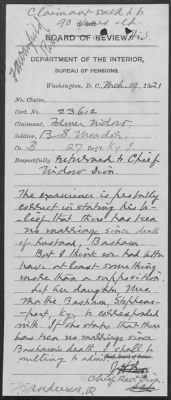 Claimant said to b
90 years old.
BOARD OF REVIEW
DEPARTMENT OF THE INTERIOR,
BUREAU OF PENSIONS,
Washington, D. C., Mch. 19, 1921
No. Claim,
Cert. No. 23612
Claimant, Former Widow
Soldier, B. S. Meador
Co. B 27 Reg't Ky. I.
Respectfully returned to Chief
Widow Div.
The examiner is probably
correct in stating his be-
lief that there has been
no marriage since death
of husband, Basham.
But I think we had better
have at least something
more than a supposition.
Let her daughter, Mrs.
Mattie Basham, Stephens-
port, Ky., be corresponded
with. If she states that there
has been no marriage since
Basham's death, I shall be
willing to admit.